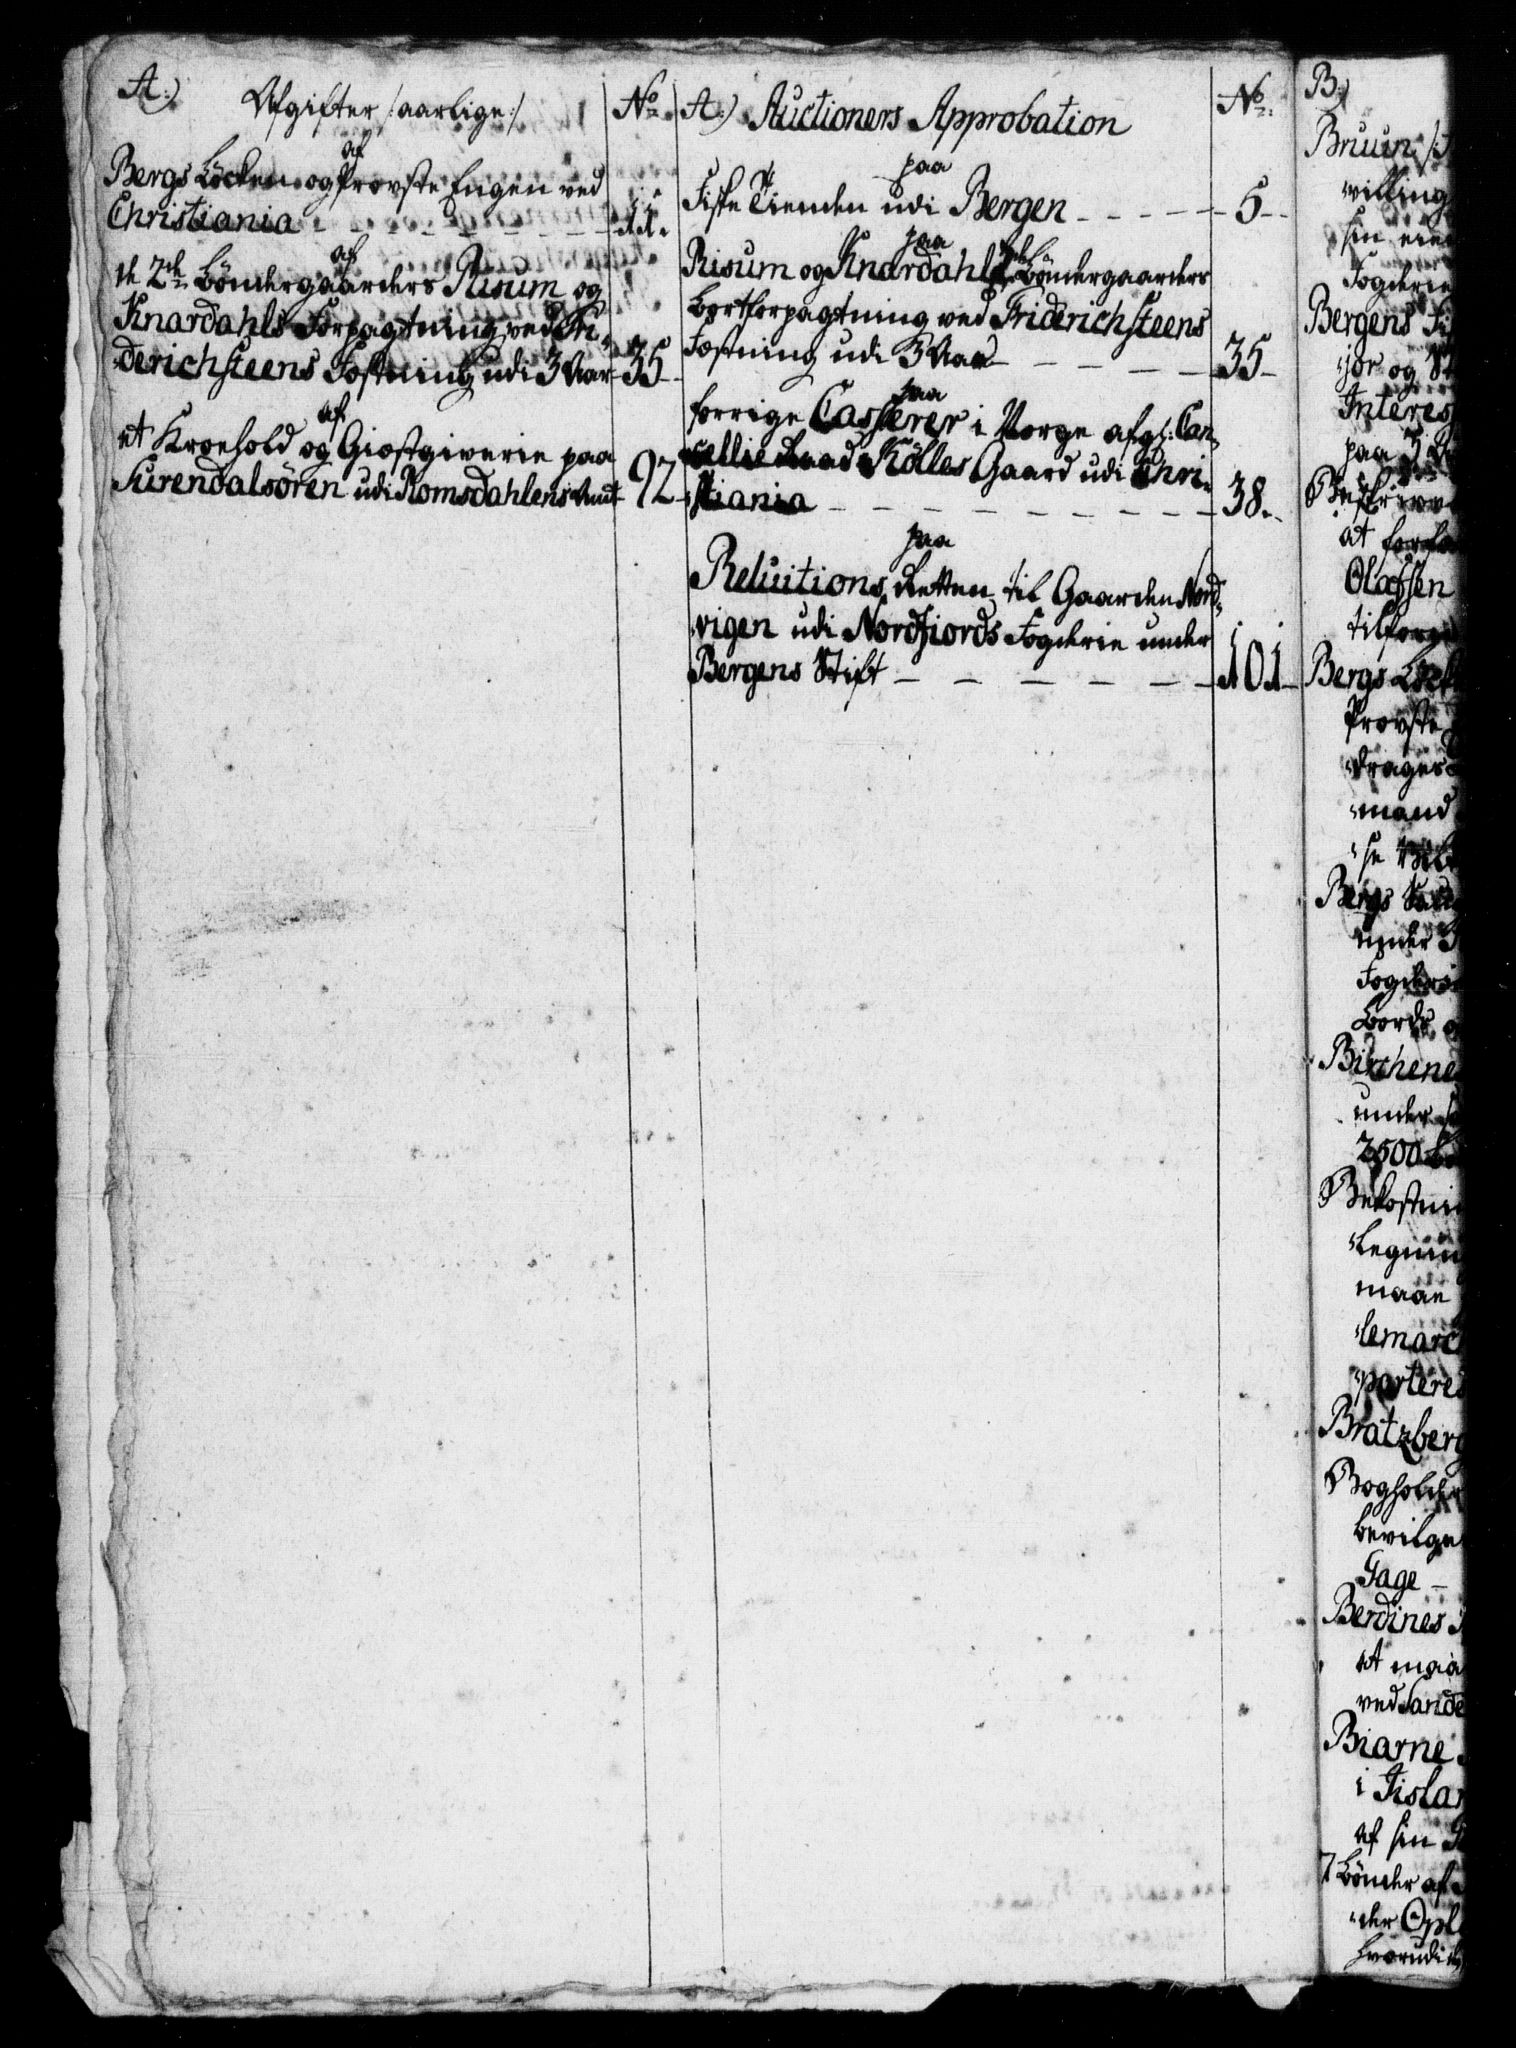 A:)
Afgifter /:aarlige:/
No
af
Bergs Löcken og Provste Engen ved
Christiania - - - - - - - - 11.
af
de 2de Böndergaarders Risum og
Knardahls Forpagtning ved Fri-
derichsteens Fæstning udi 3 Aar 35
af
et Kroehold og Giæstgiverie paa
Surendalsören udi Romsdahlens Amt 92
A:) Auctioners Approbation
No
paa
Fiske Tienden udi Bergen - - - - - 5
paa
Risum og Knardahls Böndergaarders
bortforpagtning ved Friderichsteens
Fæstning udi 3 Aar - - - - - 35
paa
forrige Casserer i Norge afg: Can-
cellie Raad Kölles Gaard udi Chri-
stiania - - - - - - - - 38.
paa
Reluitions Retten til Gaarden Nord-
vigen udi Nordfiords Fogderie under
Bergens Stift - - - - - - 101
B:)
Bruun
villing
sin
Fogderie
Bergens
jor og
Interes
paa 5
at
Olafsen
Bergs
Provste
drages
mand
se
Bergs
under
Fogderie
Bords
Birchene
under
2500
Bekostni
legnin
maae
lemarc
parteres
Bratzberg
Bogholder
bevilge
Gage -
Berdines
at maa
ved Sande
Biarne
i Iislan
af sin
7 Bönder af
der Opl
hvorudi